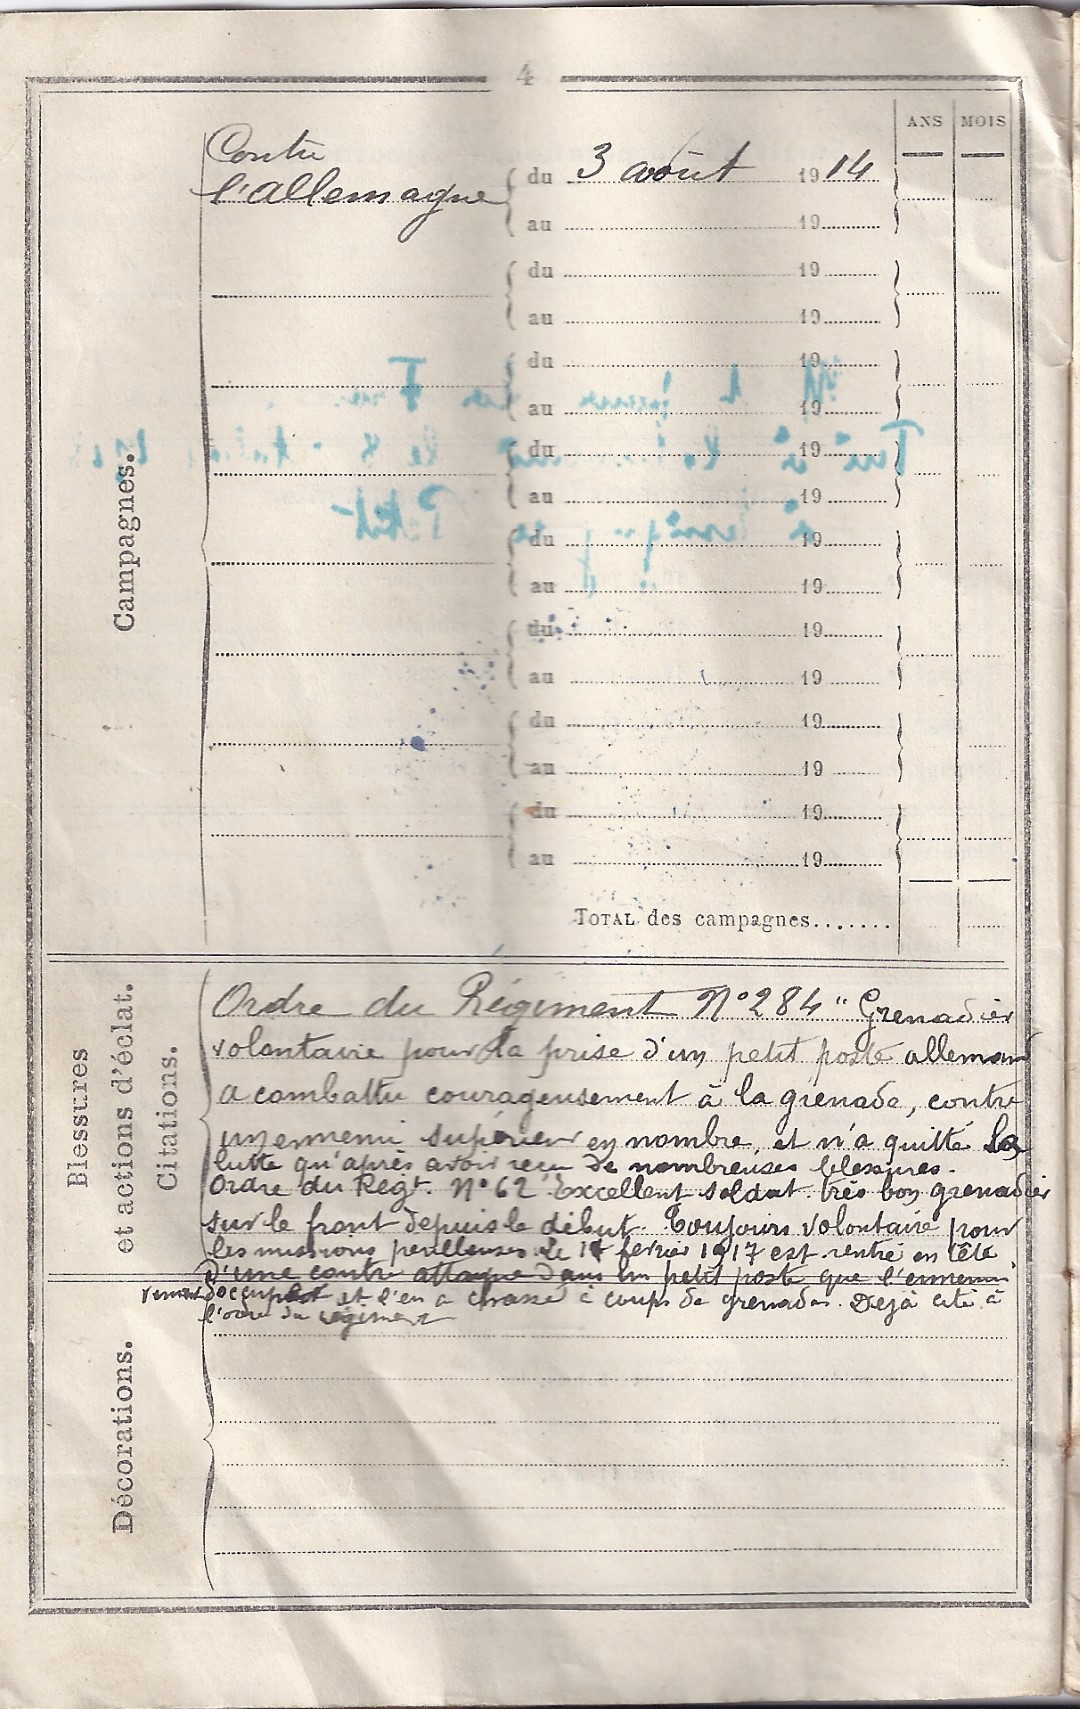 4
ANS MOIS
Contre
l'allemagne du 3 août 1914
au 19
du 19
au 19
du 19
au 19
du 19
au 19
du 19
au 19
du 19
au 19
du 19
au 19
du 19
au 19
Campagnes.
TOTAL des campagnes.......
Blessures
et actions d'éclat.
Citations.
Ordre du Régiment N° 284 " Grenadier
volontaire pour la prise d'un petit poste allemand
a combattu courageusement à la grenade, contre
un ennemi supérieur en nombre, et n'a quitté la
lutte qu'après avoir reçu de nombreuses blessures.
Ordre du Regt. N° 62 Excellent soldat. très bon grenadier
sur le front depuis le début. Toujours volontaire pour
les missions perilleuses. Le fevrier 1917 est rentré en tête
d'une contre attaque dans un petit poste que l'ennemi
venait d'occuper et l'en a chassé à coups de grenades. Dejà cité à
l'ordre du régiment
Décorations.